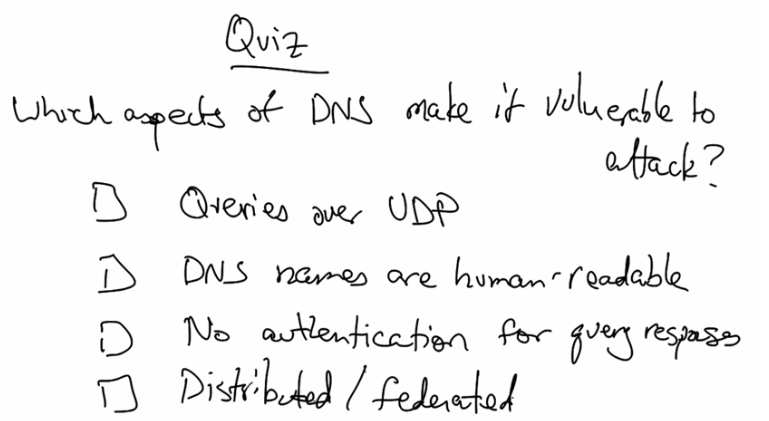 Quiz
Which aspects of DNS make it vulnerable to
attack?
Queries over UDP
DNS names are human-readable
No authentication for query respases
Distributed / federated